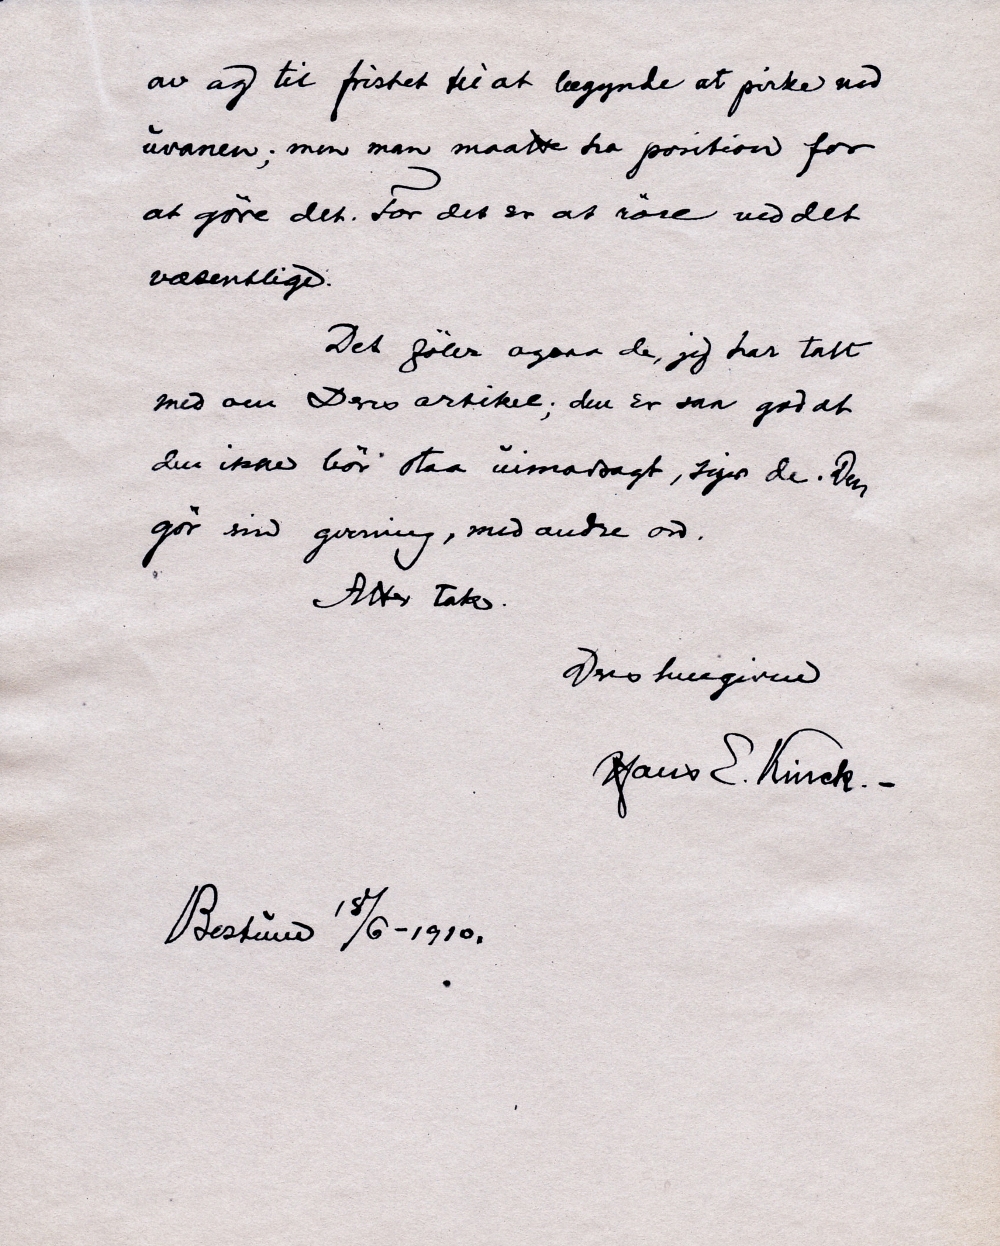 av og til fristet til at begynde at pirke ved
uvanen; men man maatte ha position for
at göre det. For det er at röre ved det
væsentlige.
Det föler ogsaa de, jeg har talt
med om Deres artikel; den er saa god at
den ikke bör staa uimodsagt, siger de. Den
gör sin gjerning, med andre ord.
Atter tak.
Deres hengivne
Hans E. Kinck.-
Bestum 18/6-1910.